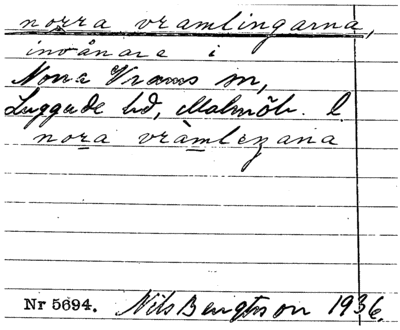 norra vramlingarna,
invånare i
Norra Vrams sn,
Luggude hd, Malmöh. l.
nora vràmlezana
Nr 5694. Nils Bengtsson 1936.